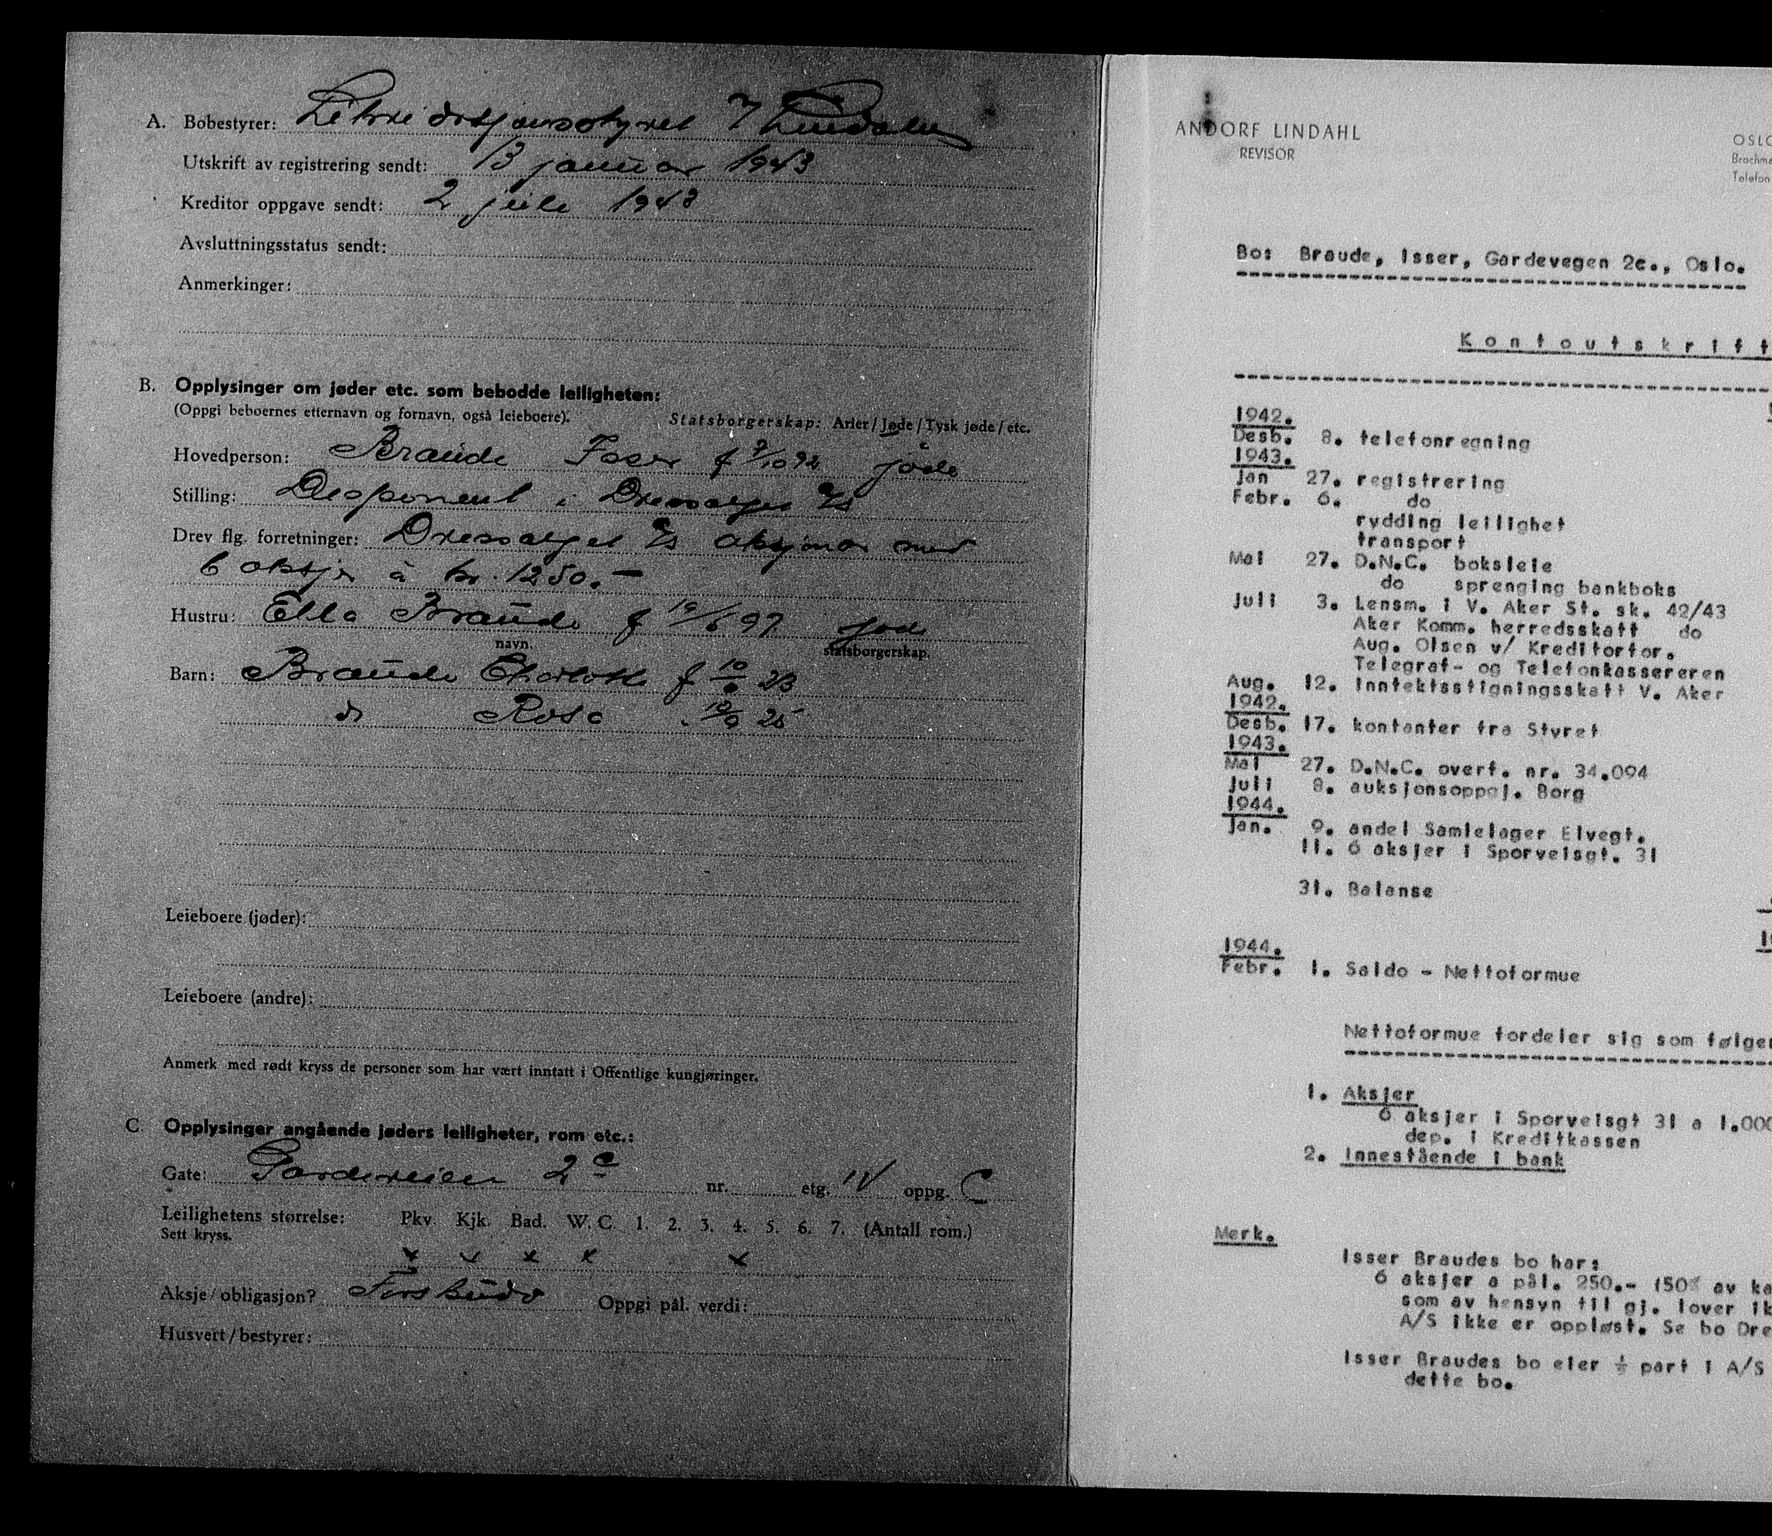 A. Bobestyrer:
Utskrift av registrering sendt: 13 januar 1943
Kreditor oppgave sendt: 2 juli 1943
Avsluttningsstatus sendt:
Anmerkinger:
B. Opplysinger om jøder etc. som bebodde leiligheten:
(Oppgi beboernes etternavn og fornavn, også leieboere). Statsborgerskap: Arier/Jøde/Tysk jøde/etc.
Hovedperson: Braude Isser f 7/10 92 jøde
Stilling: Disponent i Dressorget A/S
Drev flg. forretninger: Dressorget A/S aksjonær med
6 aksjer à kr. 1250.-
Hustru: Ella Braude f 97 jøde
navn. statsborgerskap.
Barn: Braude Charlotte f 23
do Rosa 25
Leieboere (jøder):
Leieboere (andre):
Anmerk med rødt kryss de personer som har vært inntatt i Offentlige kungjøringer.
C Opplysinger angående jøders leiligheter, rom etc.:
Gate: Gardeveien 2c nr. etg. IV oppg. C
Leilighetens størrelse: Pkv. Kjk. Bad. W.C. 1. 2. 3. 4. 5. 6. 7. (Antall rom.)
Sett kryss.
x x x x x
Aksje/obligasjon? Forskudd Oppgi pål. verdi:
Husvert/bestyrer:
ANDORF LINDAHL
REVISOR
OSLO
Brochme
Telefon
Bo: Braude, Isser, Gardevegen 2c., Oslo.
Kontoutskrift
1942.
Desb. 8. telefonregning
1943.
Jan 27. registrering
Febr. 6. do
rydding leilighet
transport
Mai 27. D.N.C. boksleie
do sprenging bankboks
Juli 3. Lensm. i V. Aker St. sk. 42/43
Aker Komm. herredsskatt do
Aug. Olsen v/ Kreditorfor.
Telegraf- og Telefonkassereren
Aug. 12. Inntektsstigningsskatt V. Aker
1942.
Desb. 17. kontanter fra Styret
1943.
Mai 27. D.N.C. overf. nr. 34.094
Juli 8. auksjonsoppgj. Borg
1944.
Jan. 9. andel Samlelager Elvegt.
11. 6 aksjer i Sporveisgt. 31
31. Balanse
1944.
Febr. 1. Saldo - Nettoformue
Nettoformue fordeler sig som følger
1. Aksjer
6 aksjer i Sporveisgt 31 a 1.000
dep. i Kreditkassen
2. Innestående i bank
Merk.
Isser Braudes bo har:
6 aksjer a pål. 250.- 150% av ka
som av hensyn til gj. lover ik
A/S ikke er oppløst. Se bo Dre
Isser Braudes bo eier ½ part i A/S
dette bo.